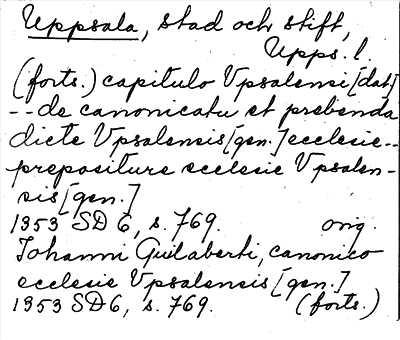 Uppsala, stad och stift,
Upps. l.
(forts.) capitulo Vpsalensi [dat]
-- de canonicatu et prebenda
dicte Vpsalensis [gen.] ecclesie --
prepositure ecclesie Vpsalen-
sis [gen.]
1353 SD 6, s. 769. orig.
Johanni Gudlaberti, canonico
ecclesie Vpsalensis [gen.]
1353 SD 6, s. 769. (forts.)